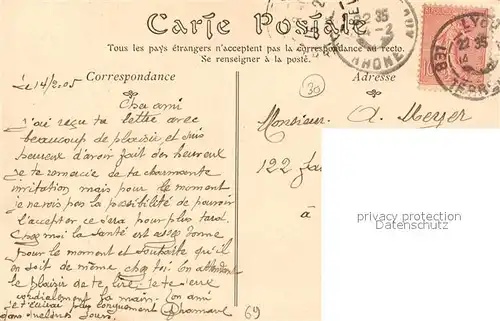 Carte Postale
Tous les pays étrangers n'acceptent pas la correspondance au recto.
Se renseigner à la poste.
Correspondance
Adresse
Le 14/2 05
Cher ami
J'ai reçu ta lettre avec
beaucoup de plaisir et suis
heureux d'avoir fait des heureux
je te remercie de ta charmante
invitation mais pour le moment
je ne vois pas la possibilité de pouvoir
l'accepter ce sera pour plus tard.
Chez moi la santé est assez bonne
pour le moment et souhaite qu'il
en soit de même chez toi. En attendant
le plaisir de te lire, je te serre
cordialement la main. Ton ami
je t'écrirai plus longuement
dans quelques jours.
30
Monsieur A. Meyer
122
à
69
LYON
22 35
RHONE
privacy protection
Datenschutz